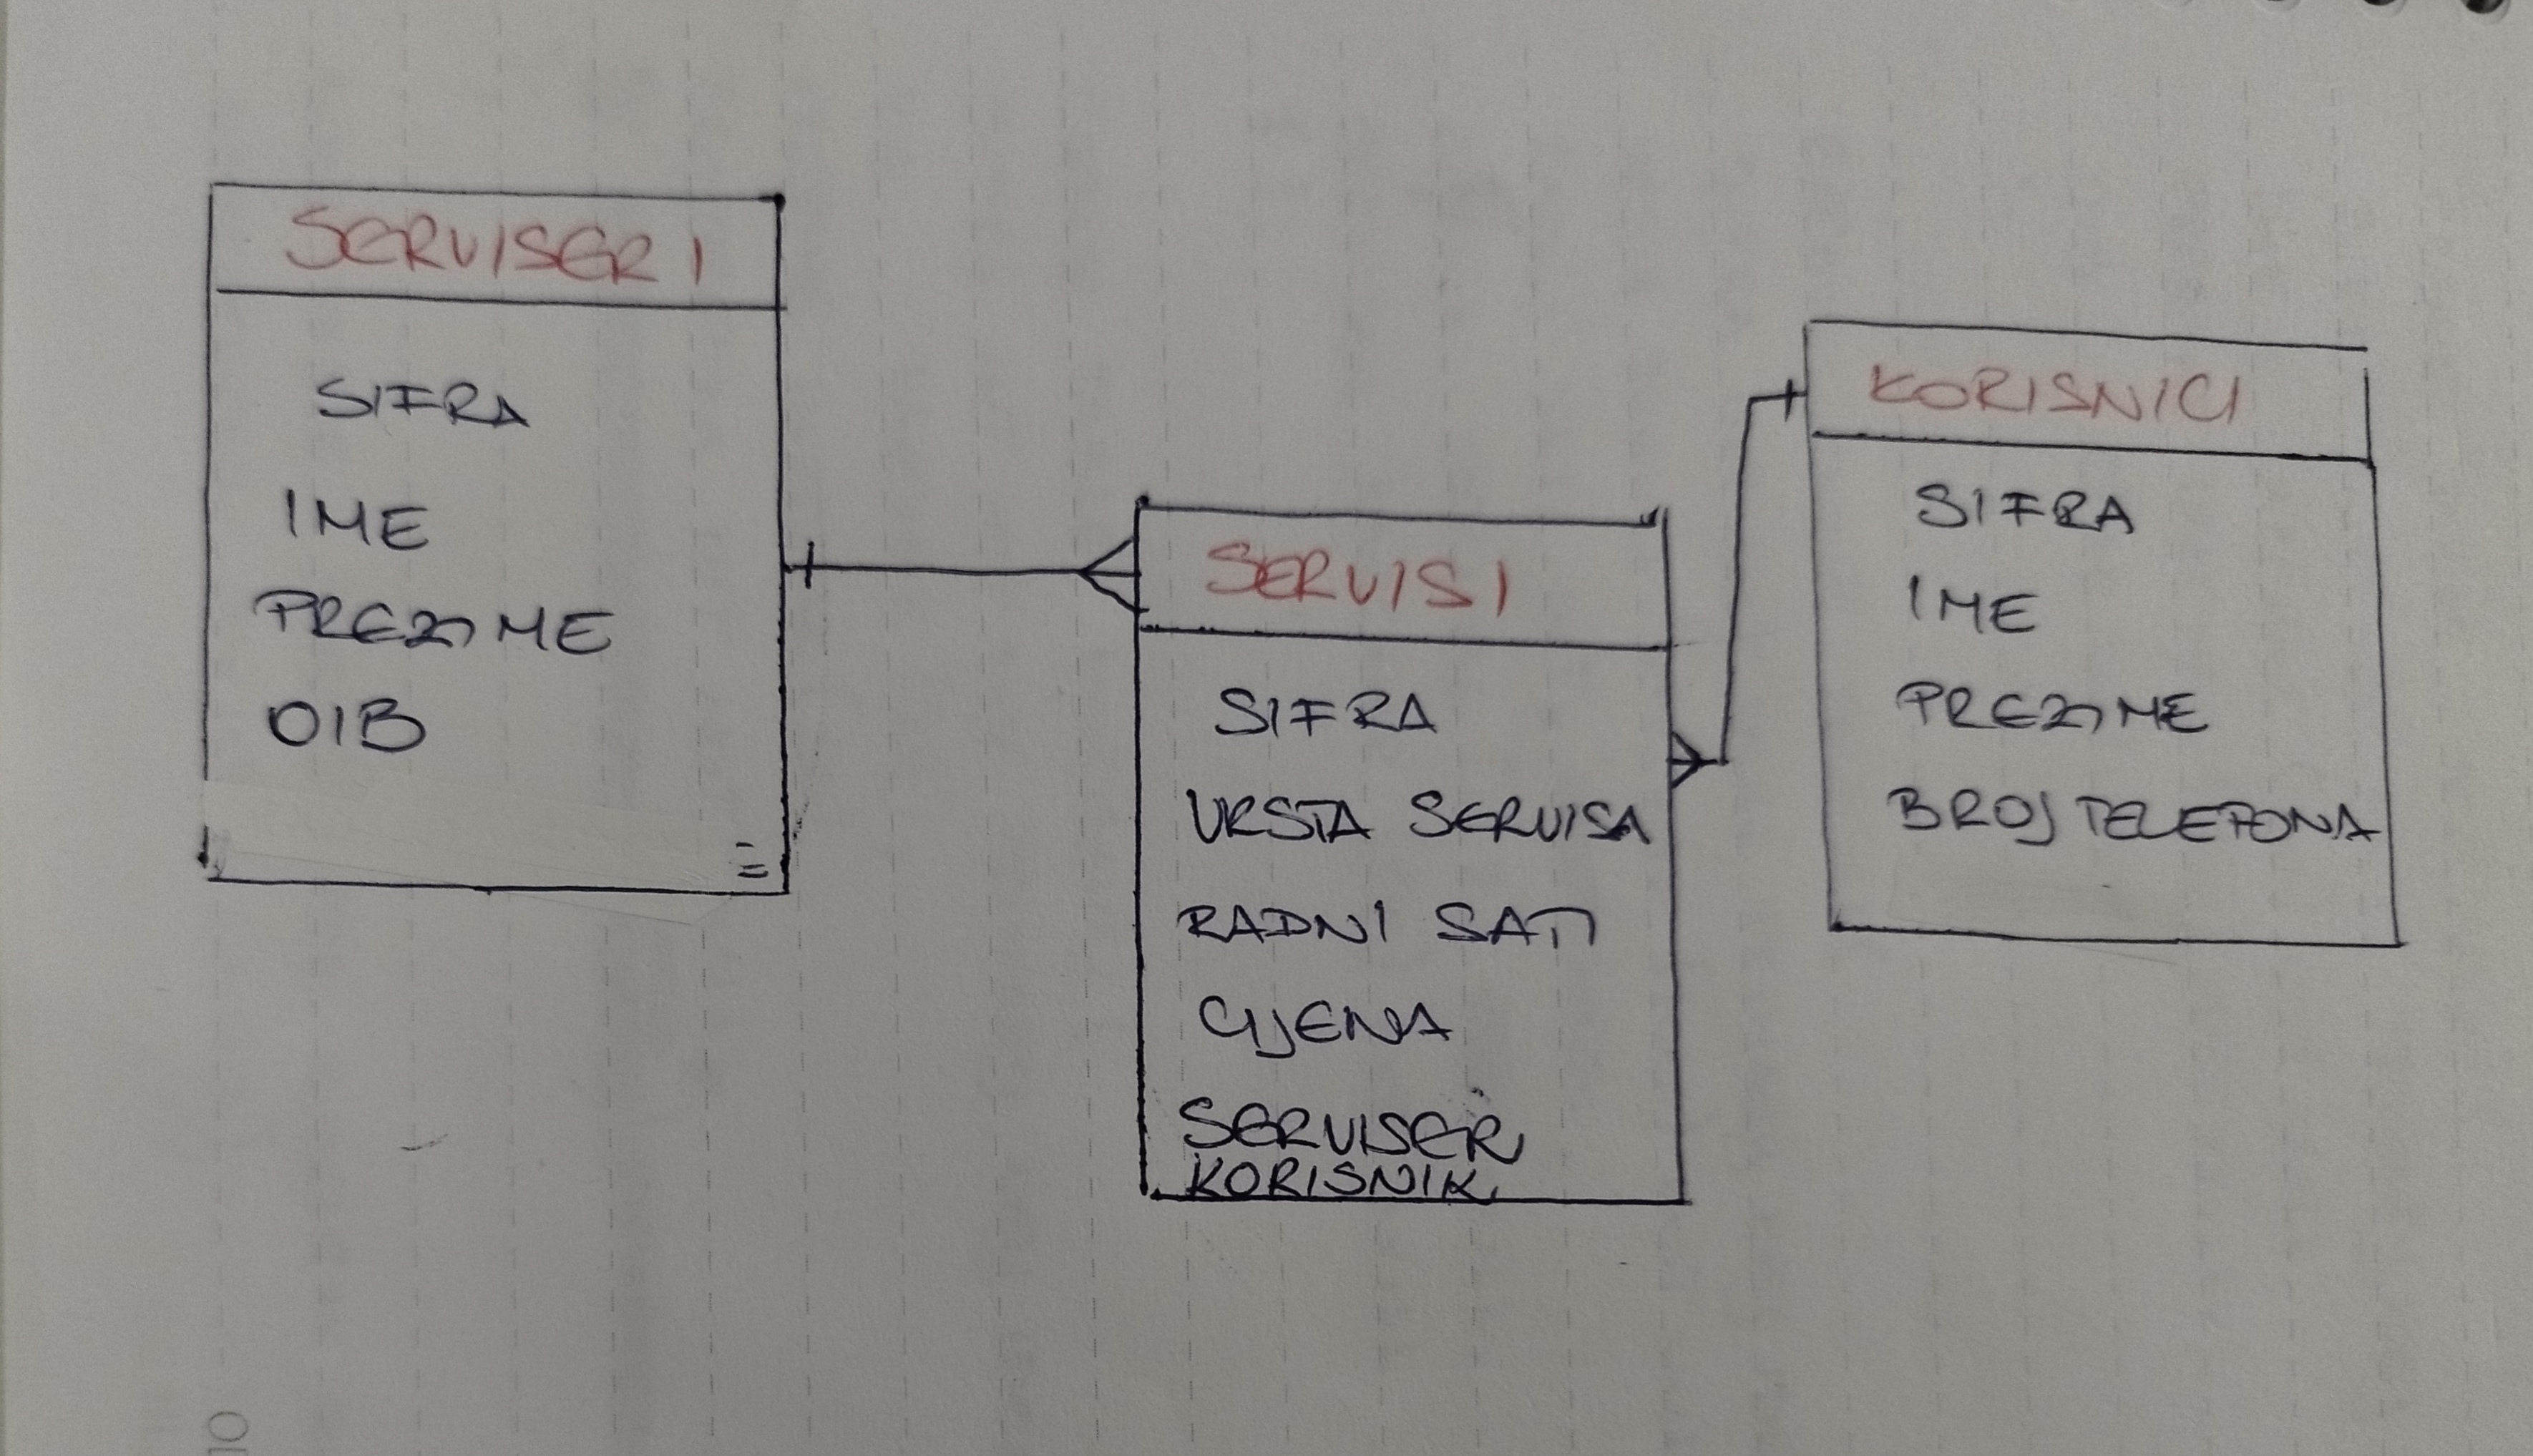 SERVISERI
SIFRA
IME
PREZIME
OIB
SERVISI
SIFRA
VRSTA SERVISA
RADNI SATI
CIJENA
SERVISER
KORISNIK
KORISNICI
SIFRA
IME
PREZIME
BROJ TELEFONA
10